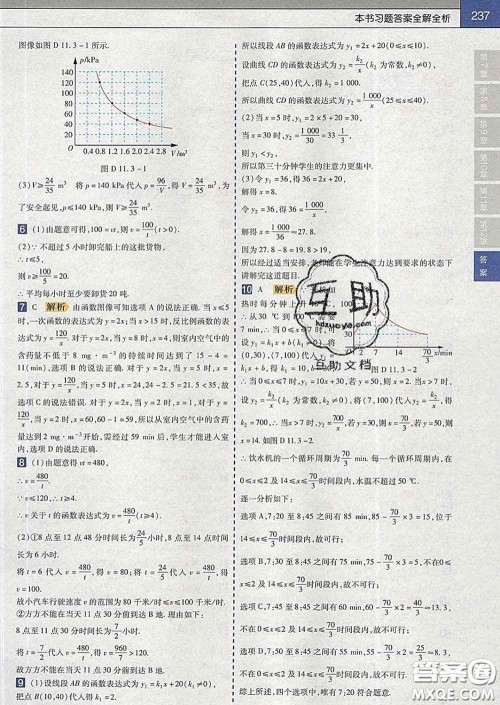 本书习题答案全解全析
237
图像如图 D 11.3-1 所示.
p/kPa
140
120
100
80
60
40
20
0.4 0.8 1.2 1.6 2.0 2.4 2.8 V/m³
图 D 11.3-1
(3) V≥24/35 m³ 将 p=140 kPa 代入 p=96/V, 得 V=24/35 m³, 为
了安全起见, p≤140 kPa, ∴ V≥24/35 m³.
6 (1) 由题意可得, 100=vt, 则 v=100/t (t>0).
(2)∵ 不超过 5 小时卸完船上的这批货物,
∴ t≤5,
∴ 平均每小时至少要卸货 20 吨.
7 C 解析 由函数图像可知选项 A 的说法正确. 当 x≤5
时, 一次函数的表达式为 y=2x; 当 x>15 时, 反比例函数的表
达式为 y=120/x. 当 y=8 时, x=4 或 x=15, 则室内空气中的
含药量不低于 8 mg·m⁻³ 的持续时间达到了 15-4=
11(min), 选项 B 的说法正确. 当 y=5 时, x=
2.5, 对于 y=120/x, 当 y=5 时, x=24, 24-2.5=21.5<35, 故
选项 C 的说法错误. 对于 y=2x, 当 y=2 时, x=1, 对于 y=
120/x, 当 y=2 时, x=60, 60-1=59, 所以当室内空气中的含
药量达到 2 mg·m⁻³ 开始, 需经过 59 min 后, 学生才能进入室
内, 选项 D 的说法正确.
8 (1) 由题意得 vt=480,
∴ v=480/t.
∵ v≤120, ∴ t≥4,
∴ v 关于 t 的函数表达式为 v=480/t (t≥4).
(2)①8 点至 12 点 48 分时间长为 24/5 小时, 8 点至 14 点时间
长为 6 小时.
将 t=6 代入 v=480/t 得 v=80, 将 t=24/5 代入 v=480/t 得
v=100.
故小汽车行驶速度 v 的范围为 80 千米/时≤v≤100 千米/时.
②方方不能在当天 11 点 30 分前到达 B 地, 理由如下:
8 点至 11 点 30 分时间长为 7/2 小时,
将 t=7/2 代入 v=480/t 得 v=960/7>120.
故方方不能在当天 11 点 30 分前到达 B 地.
9 (1) 设线段 AB 的函数表达式为 y₁=k₁x+20(k₁≠0),
把点 B(10,40) 代入得 k₁=2.
所以线段 AB 的函数表达式为 y₁=2x+20(0≤x≤
设曲线 CD 的函数表达式为 y₂=k₂/x (k₂ 为常数, k₂≠0),
把点 C(25,40) 代入得 k₂=1 000,
所以曲线 CD 的函数表达式为 y₂=1 000/x
(2) 当 x=5 时, y₁=2×5+20=30,
当 x=30 时, y₂=1 000/30=33 1/3,
所以 y₁<y₂,
所以第三十分钟学生的注意力更集中.
(3) 令 y₁=36, 得 36=2x+20,
解得 x=8.
令 y₂=36, 得 36=1 000/x, 解得 x≈
因为 27.8-8=19.8>19,
所以经过适当安排, 老师能在学生注意力达到要求的状态下
讲解完这道题目.
10 A 解析
热时每分钟上升 10
0 7 14 70/3 x/min
图 D 11.3-2
(0,30),(7,100) 代入 y₁=
k₁x+b, 得 k₁=10, b=30,
∴ 当 0≤x≤7 时, y₁=10x+30, 若 y₁=50, 则 x=2.
设 y₂=k₂/x (k₂ 为常数, k₂≠0), 将 (7,100) 代入 y₂=k₂/x, 得 k₂=
700, ∴ 当 x>7 时, y₂=700/x, 若 y₂=30, 则 x=70/3, 若 y₂=50, 则
x=14. 如图 D 11.3-2.
∴ 饮水机的一个循环周期为 70/3 min, 在每一个循环周期内,
在 0≤x≤2 及 14≤x≤70/3 时间段内, 水温不超过 50 ℃.
逐一分析如下:
选项 A, 7:20 至 8:45 之间有 85 min, 85-70/3×3=15, 位于
14≤x≤70/3 时间段内, 故可行;
选项 B, 7:30 至 8:45 之间有 75 min, 75-70/3×3=5, 不在 0≤
x≤2 及 14≤x≤70/3 时间段内, 故不可行;
选项 C, 7:45 至 8:45 之间有 60 min, 60-70/3×2=40/3,
不在 0≤x≤2 及 14≤x≤70/3 时间段内, 故不可行;
选项 D, 7:50 至 8:45 之间有 55 min, 55-70/3×2=25/3,
不在 0≤x≤2 及 14≤x≤70/3 时间段内, 故不可行.
综上所述, 四个选项中, 唯有 7:20 符合题意.
答案
互助
互助文档
答案圈
MXQE.COM